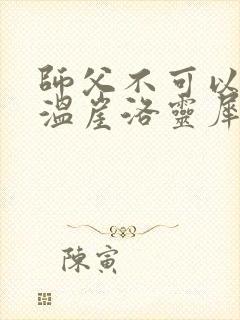 師父不可以
溫崖洛靈犀
陳寅